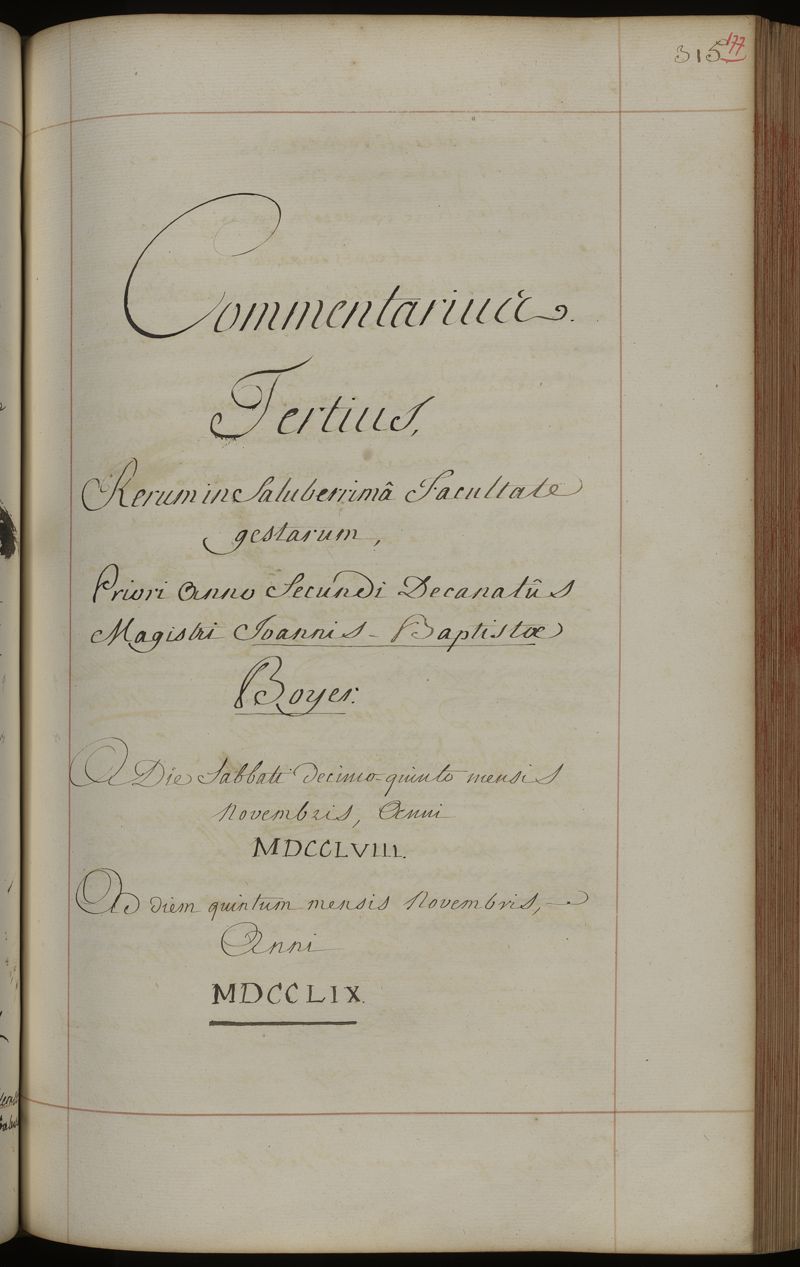 315
177
Commentarius.
Tertius,
Rerum in Saluberrimâ Facultate
gestarum,
Priori anno Secundi Decanatûs
Magistri Joannis-Baptistæ
Boyer.
A Die Sabbati decimo-quinto mensis
novembris, Anni
MDCCLVIII.
Ad diem quintum mensis novembris,
Anni
MDCCLIX.